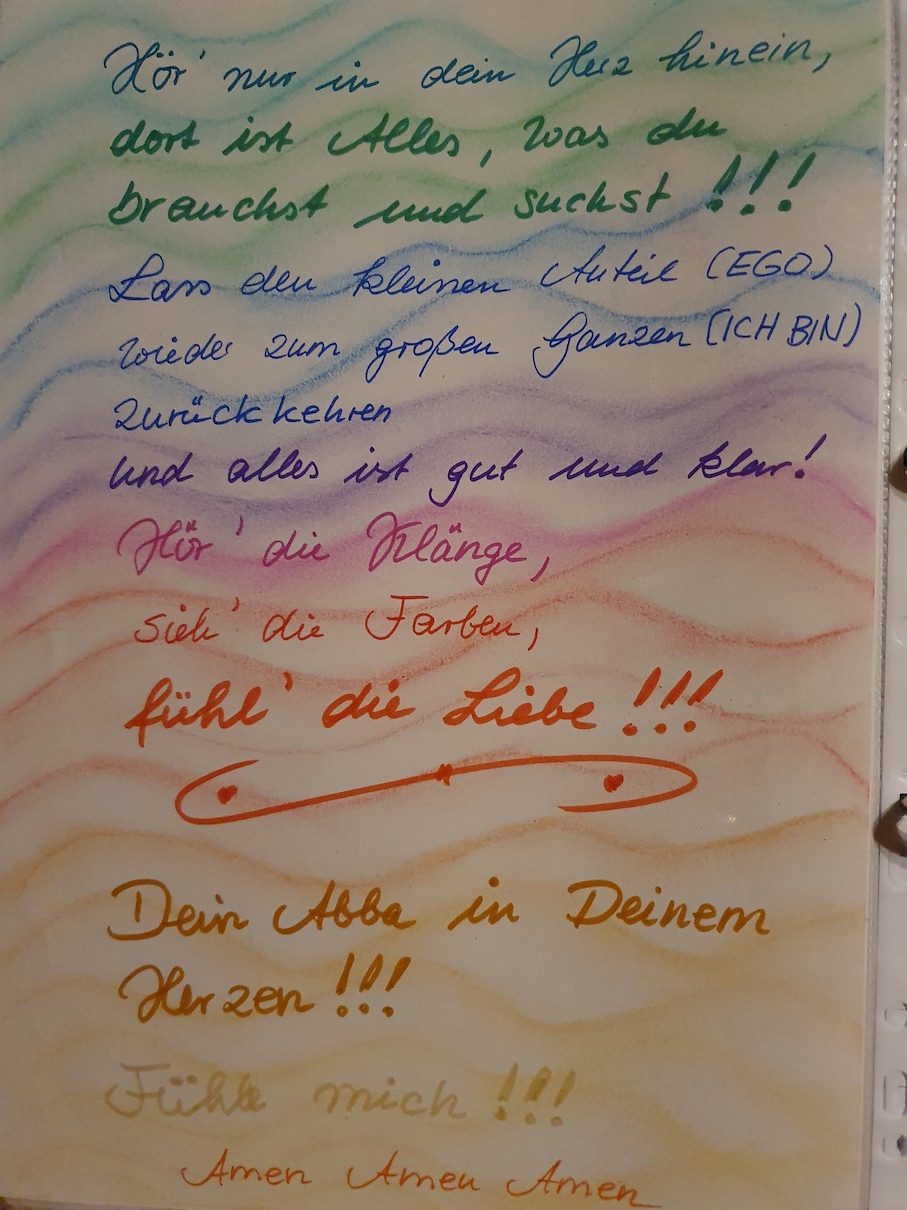 Hör' nur in dein Herz hinein,
dort ist Alles, was du
brauchst und suchst !!!
Lass den kleinen Anteil (EGO)
wieder zum großen Ganzen (ICH BIN)
zurückkehren
und alles ist gut und klar!
Hör' die Klänge,
sieh' die Farben,
fühl' die Liebe !!!
Dein Abba in Deinem
Herzen !!!
Fühle mich !!!
Amen Amen Amen